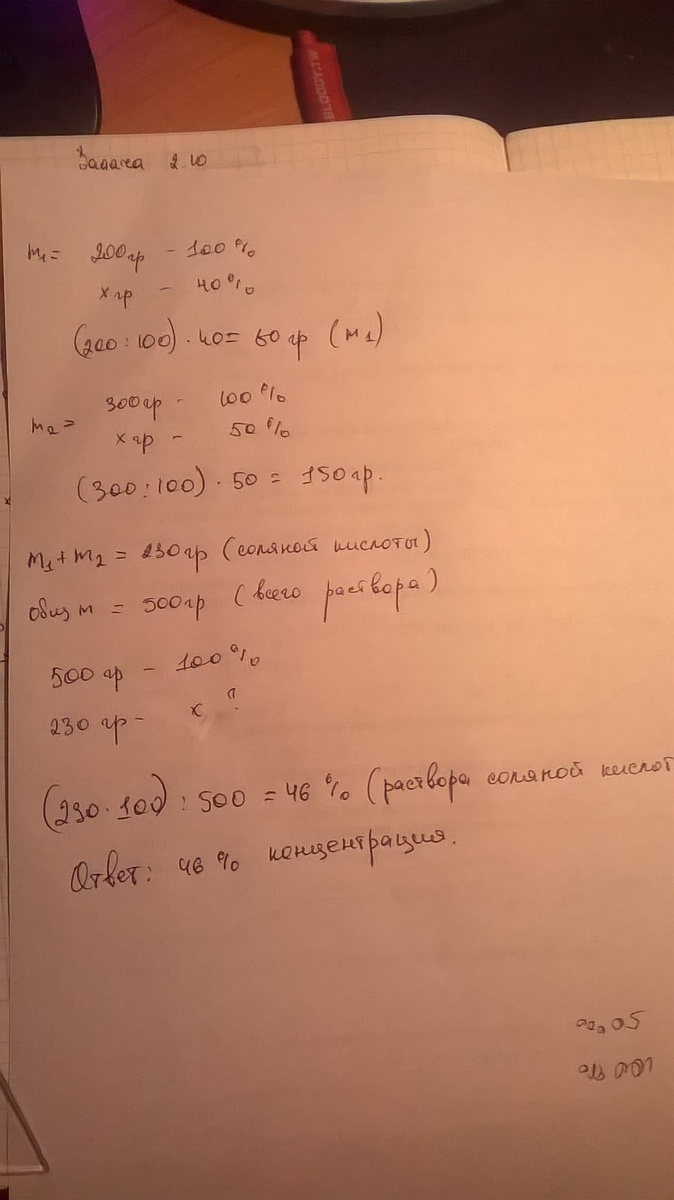 Задача 2.10
m₁ = 200 гр - 100%
х гр - 40%
(200 : 100) · 40 = 80 гр (м 1)
m₂ = 300 гр - 100%
х гр - 50%
(300 : 100) · 50 = 150 гр.
m₁ + m₂ = 230 гр (соляной кислоты)
общ m = 500 гр (всего раствора)
500 гр - 100%
230 гр - х ?
(230 · 100) : 500 = 46% (раствора соляной кислот
Ответ: 46% концентрация.